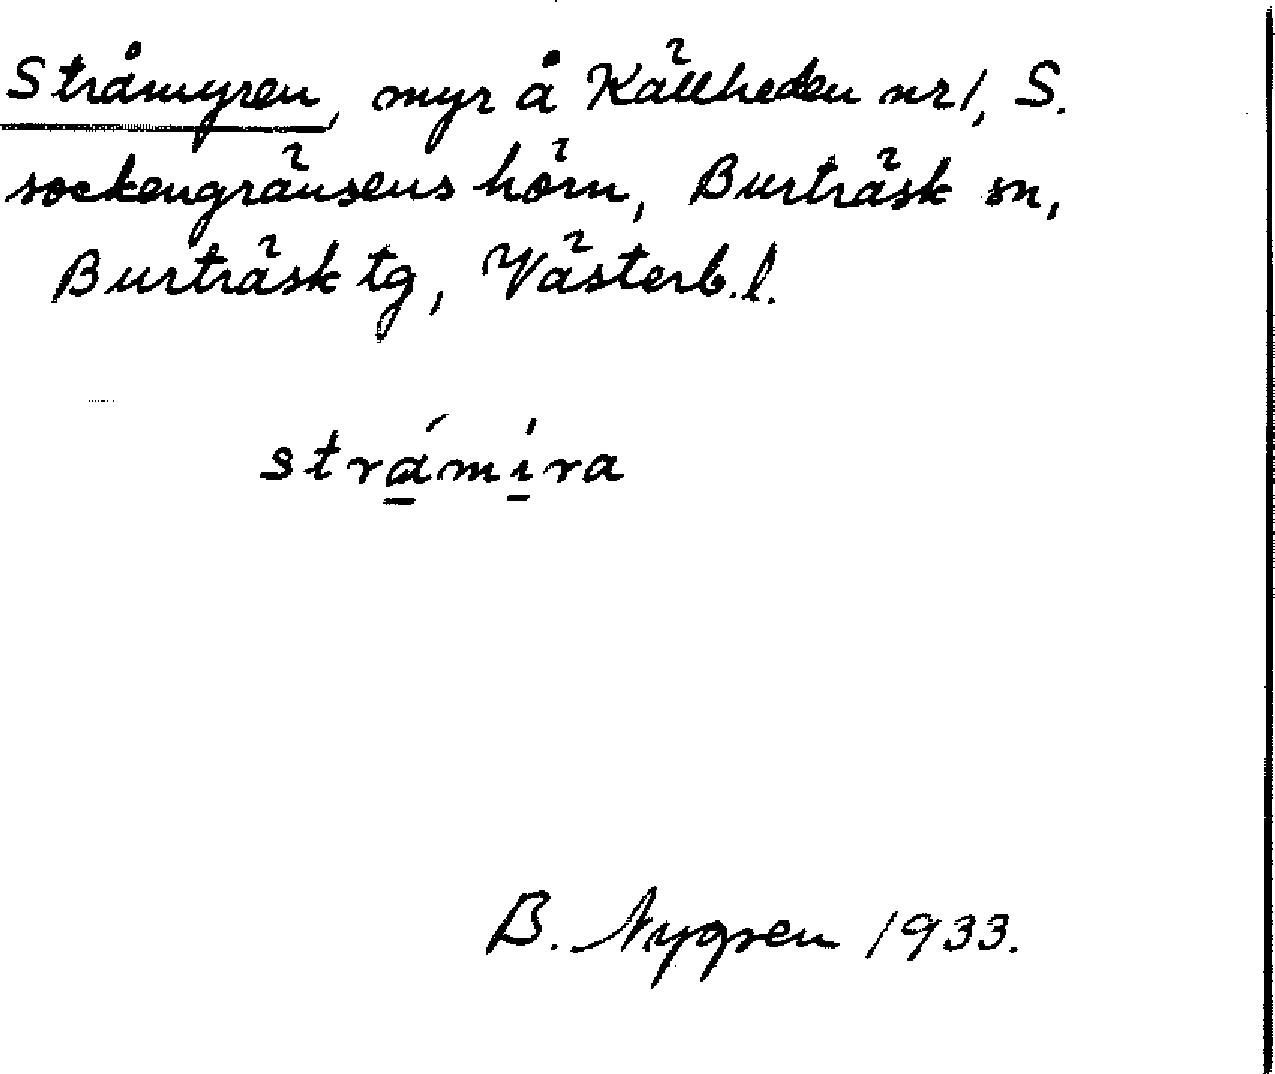 Stråmyren, myr å Källheden nr 1, S.
sockengränsens hörn, Burträsk sn,
Burträsk tg, Västerb. l.
strá̱mí̱ra
B. Nygren 1933.